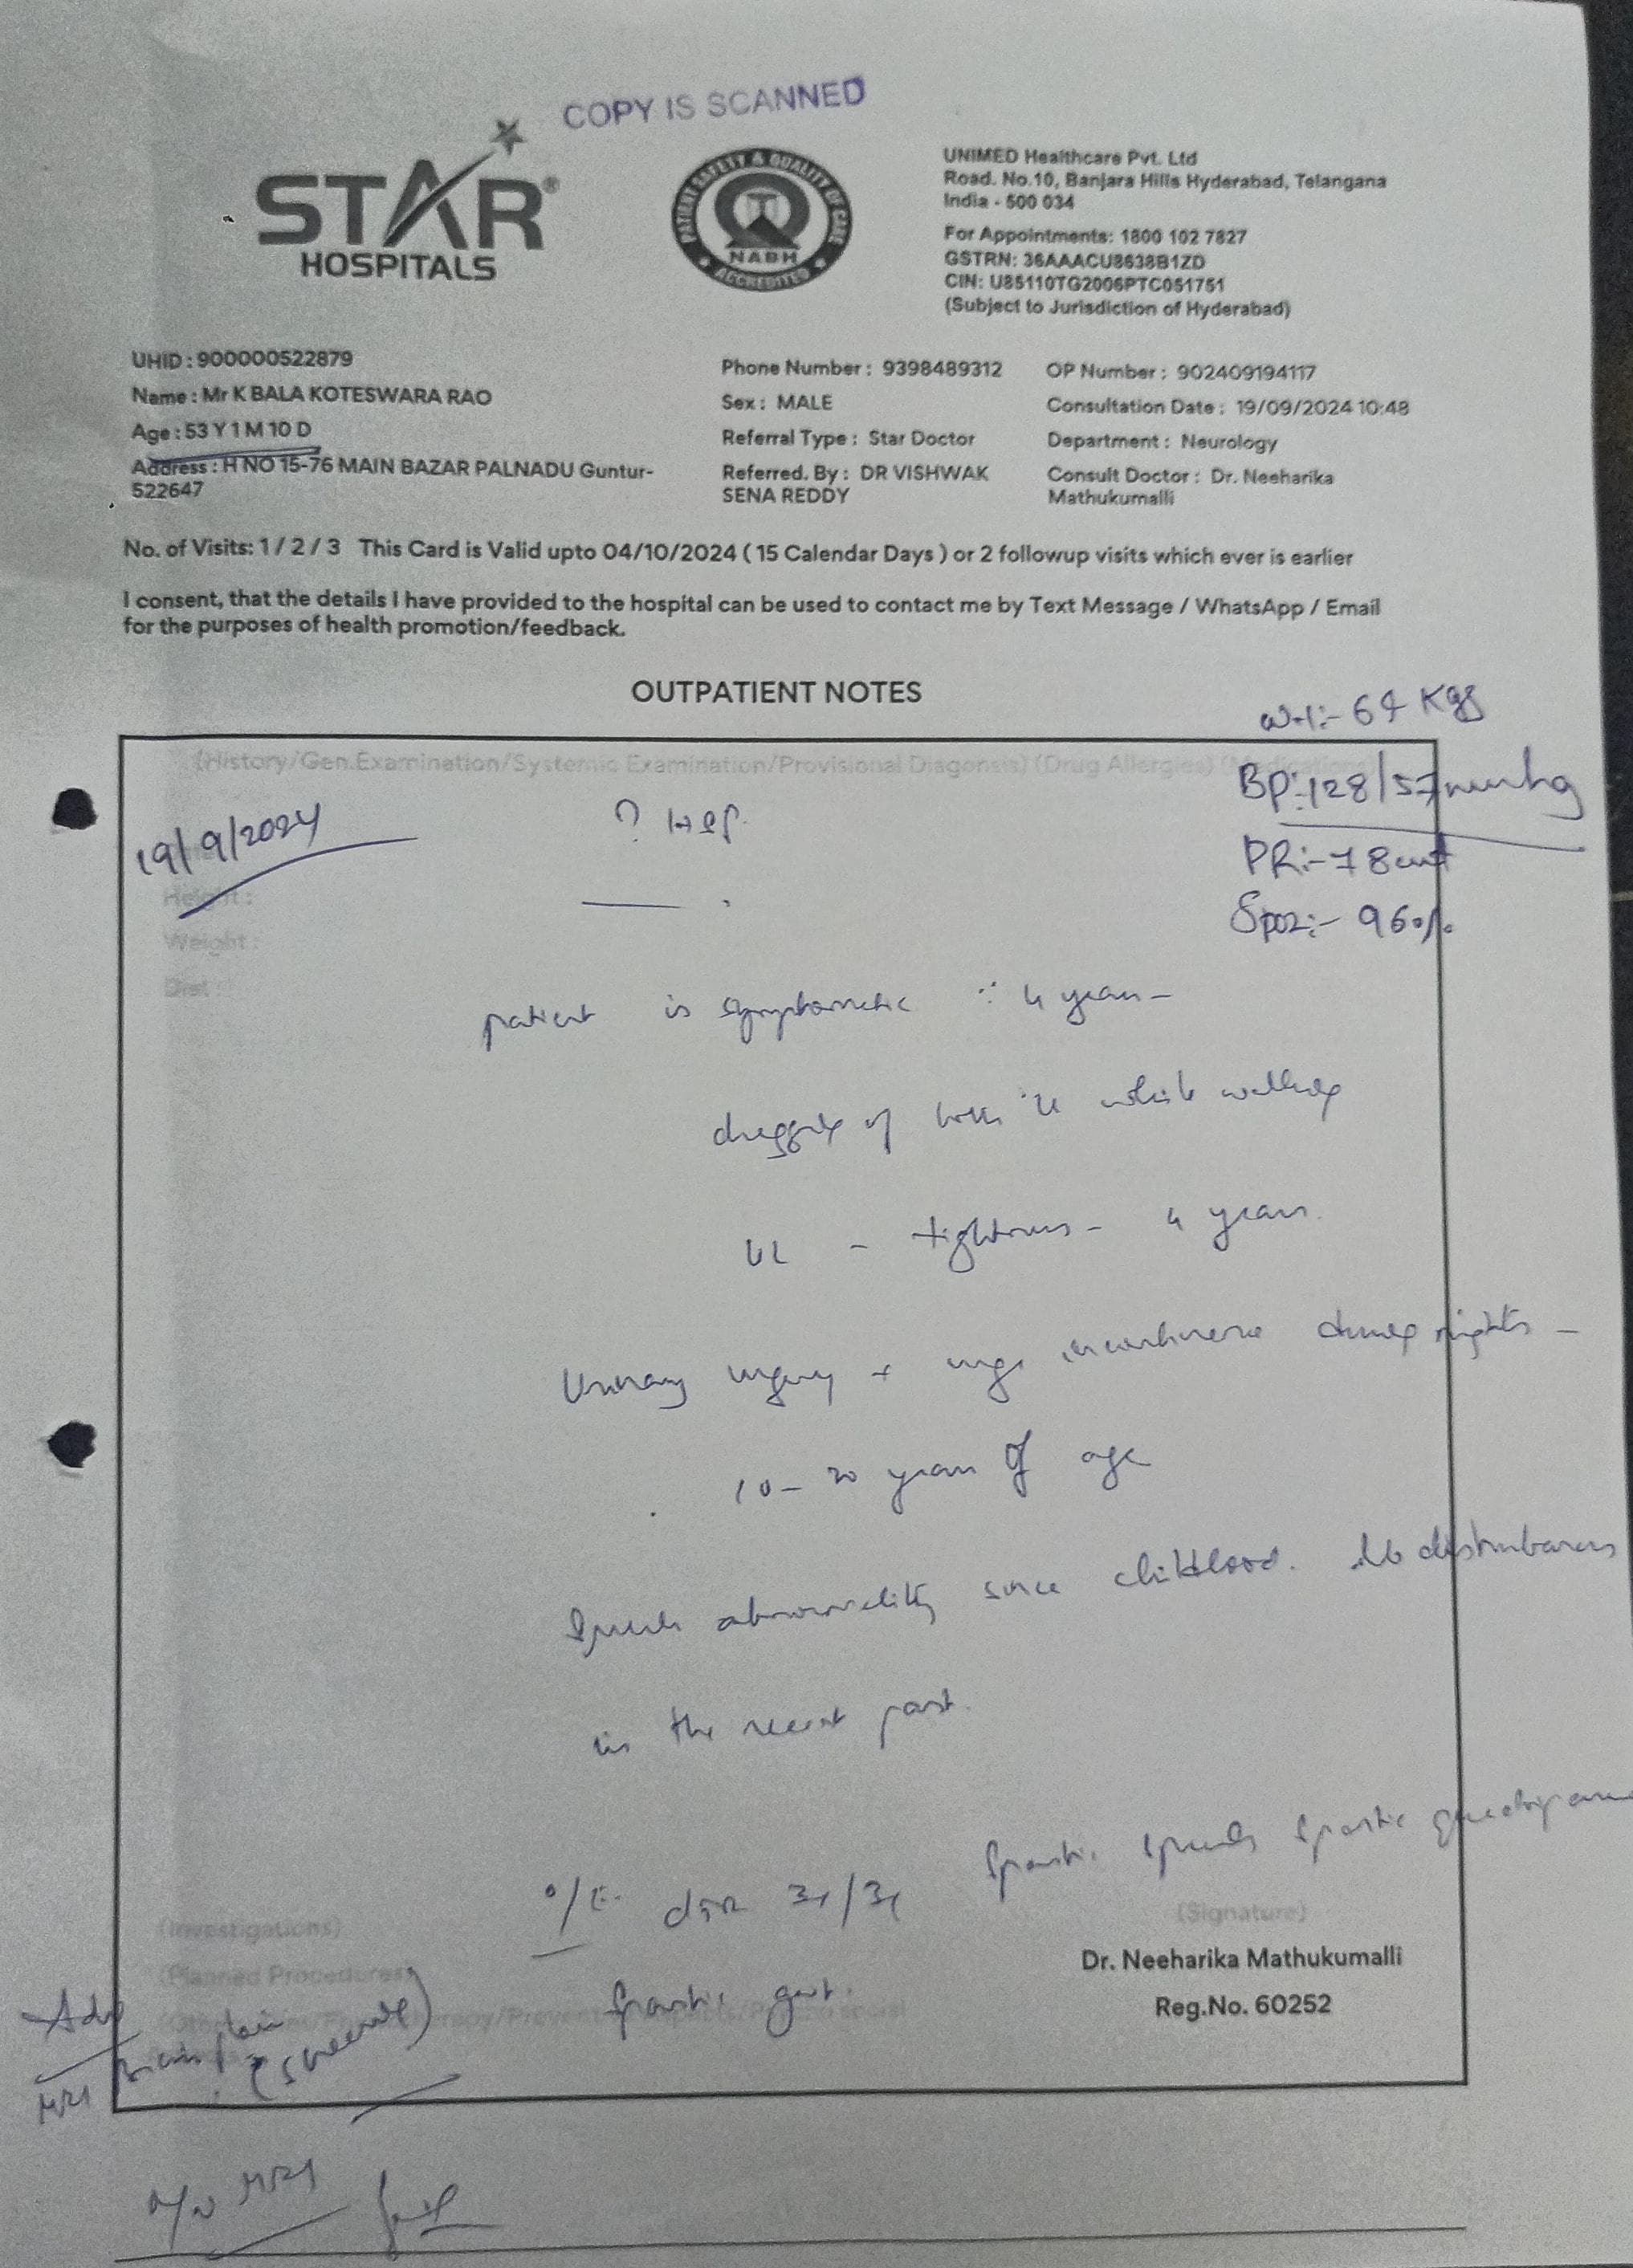 COPY IS SCANNED
STAR®
HOSPITALS
PATIENT SAFETY & QUALITY OF CARE
NABH
ACCREDITED
UNIMED Healthcare Pvt. Ltd
Road. No.10, Banjara Hills Hyderabad, Telangana
India - 500 034
For Appointments: 1800 102 7827
GSTRN: 36AAACU8638B1ZD
CIN: U85110TG2006PTC051751
(Subject to Jurisdiction of Hyderabad)
UHID : 900000522879
Name : Mr K BALA KOTESWARA RAO
Age : 53 Y 1 M 10 D
Address : H NO 15-76 MAIN BAZAR PALNADU Guntur-
522647
Phone Number : 9398489312
Sex : MALE
Referral Type : Star Doctor
Referred. By : DR VISHWAK
SENA REDDY
OP Number : 902409194117
Consultation Date : 19/09/2024 10:48
Department : Neurology
Consult Doctor : Dr. Neeharika
Mathukumalli
No. of Visits: 1 / 2 / 3 This Card is Valid upto 04/10/2024 ( 15 Calendar Days ) or 2 followup visits which ever is earlier
I consent, that the details I have provided to the hospital can be used to contact me by Text Message / WhatsApp / Email
for the purposes of health promotion/feedback.
OUTPATIENT NOTES
(History/Gen.Examination/Systemic Examination/Provisional Diagonsis) (Drug Allergies)
BP:-128/57mmhg
19/9/2024
? HSP.
PR:-78
Height :
Spo2:- 96%
Weight :
Diet :
patient is symptomatic 4 years-
dragging of both while walking
UL - tightness - 4 years.
Urinary urgency + urge incontinence during nights -
10 - 20 years of age
Speech abnormality since childhood. disturbances
in the recent past.
O/E. DTR 3+/3+ Spastic speech Spastic
(Investigations)
(Signature)
(Planned Procedures
Dr. Neeharika Mathukumalli
Spastic gait.
Reg.No. 60252
Adv
MRI Brain plain
MRI